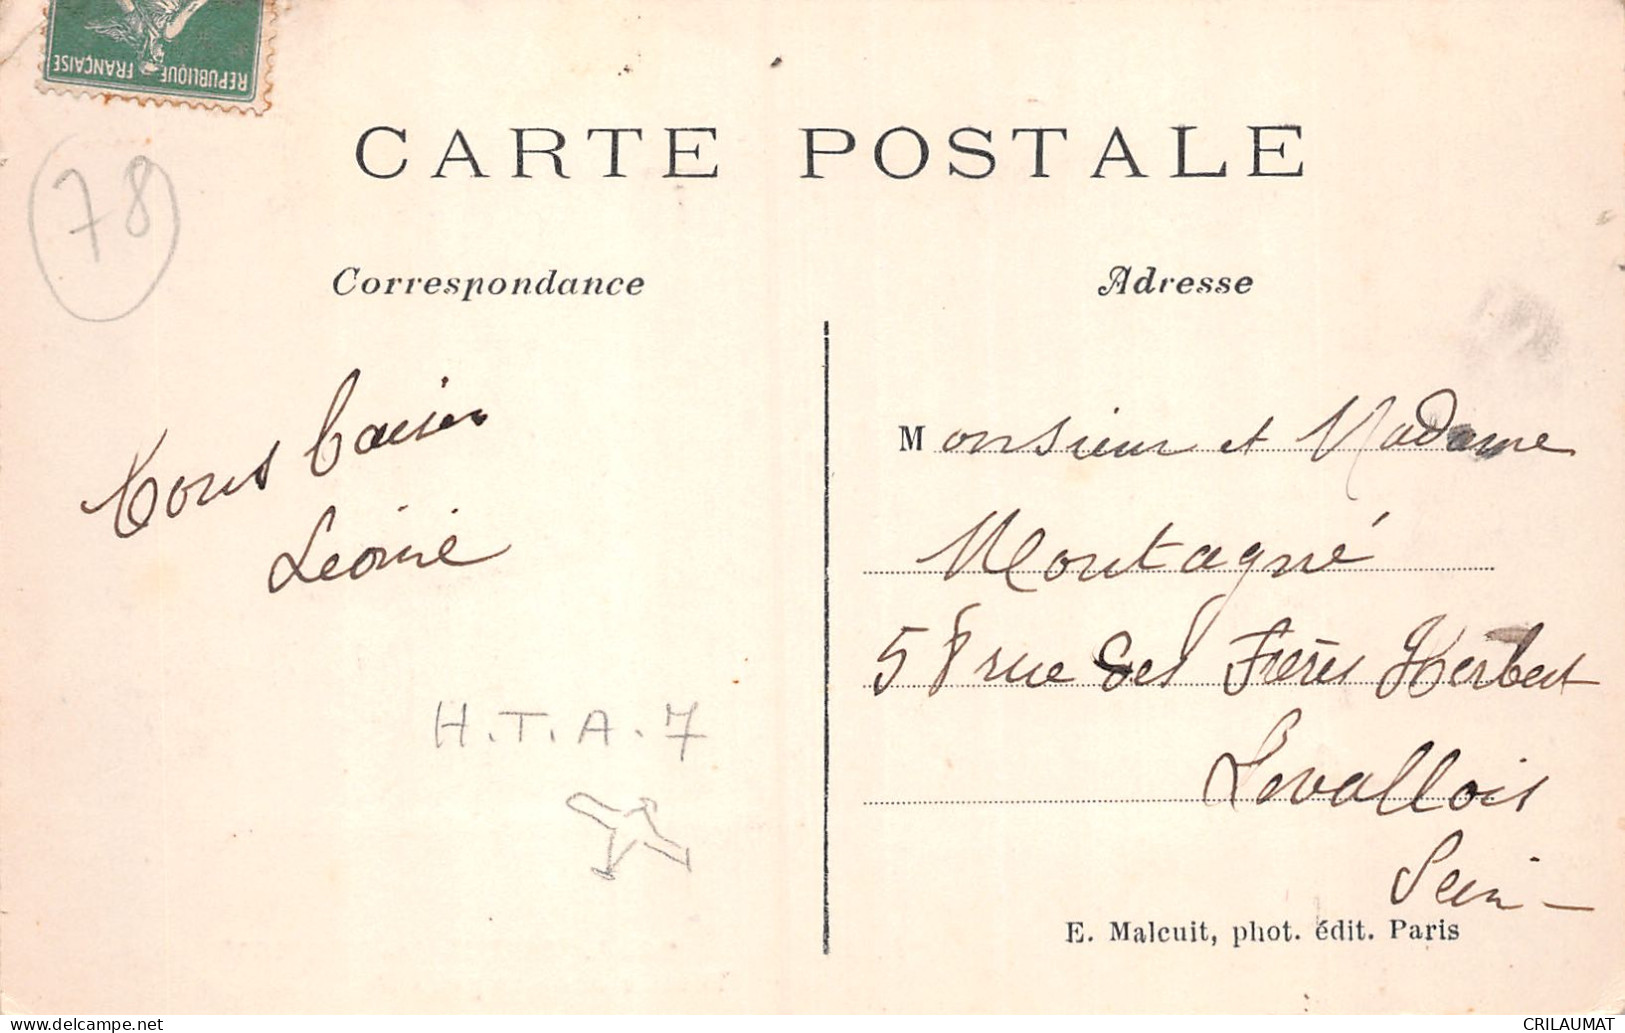 REPUBLIQUE FRANÇAISE
78
CARTE POSTALE
Correspondance
Adresse
Tous baisers
Léonie
H.T.A.7
Monsieur et Madame
Montagné
58 rue des Frères Herbert
Levallois
Sein
E. Malcuit, phot. édit. Paris
CRILAUMAT